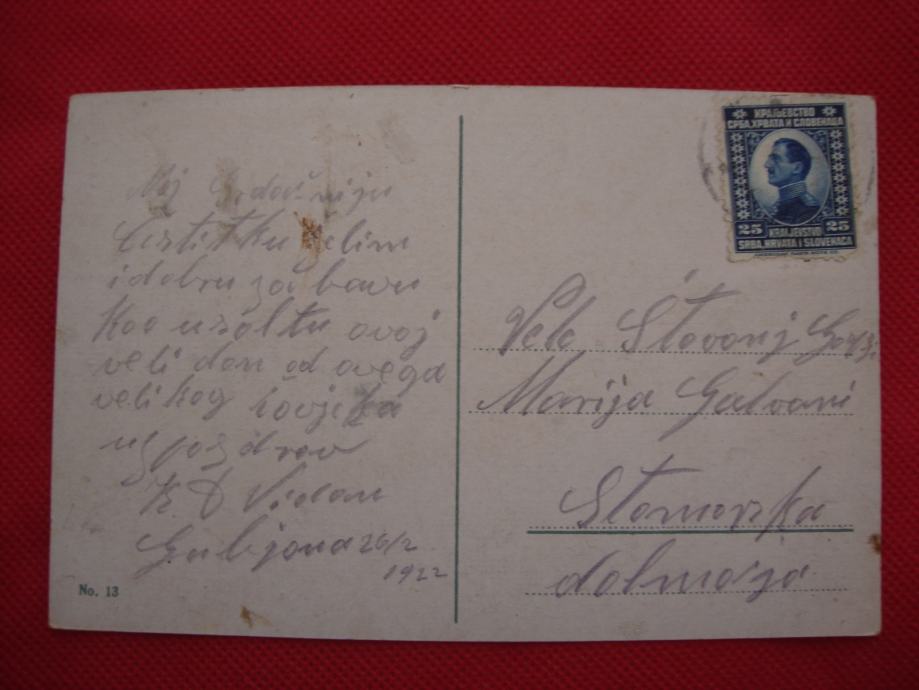 Moj
čestitku želim
i dobru zabavu
kao uzoltu ovoj
veli dan od ovega
velikog čovjeka
uz pozdrav
K. D Vidan
Gubljana 26/2
1922
No. 13
КРАЉЕВСТВО
СРБА, ХРВАТА И СЛОВЕНАЦА
25 KRALJEVSTVO 25
SRBA, HRVATA I SLOVENACA
Vele Štovanj
Marija Galvani
Stomorska
dolmacja